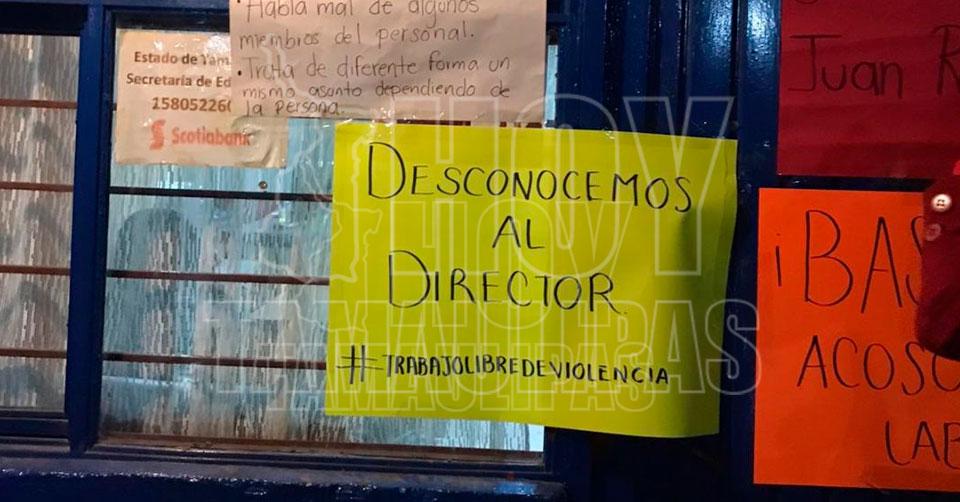 ·Habla mal de algunos
miembros del personal.
·Trata de diferente forma un
mismo asunto dependiendo de
la persona.
Estado de Tam
Secretaría de Ed
158052260
Scotiabank
DESCONOCEMOS
AL
DIRECTOR.
#TRABAJOLIBREDEVIOLENCIA
Juan R
¡BAS
ACOSO
LAB
HOY
TAMAULIPAS
HOY
TAMAULIPAS